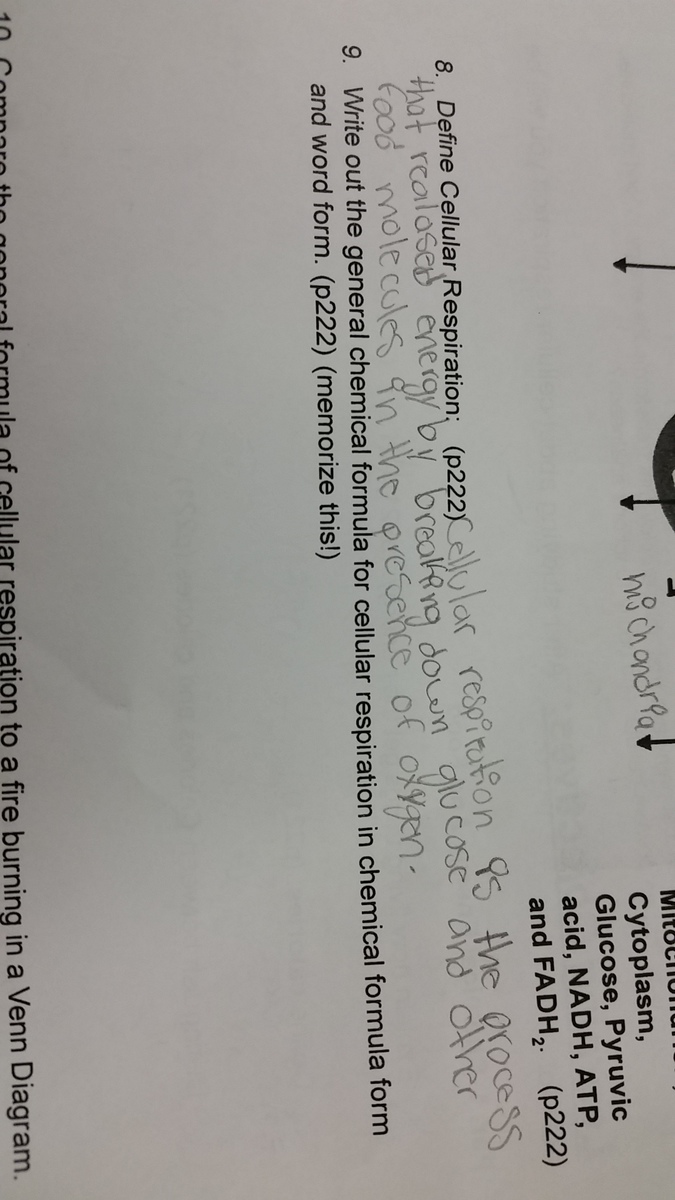 Cytoplasm,
Glucose, Pyruvic
acid, NADH, ATP,
and FADH₂. (p222)
michandria
8. Define Cellular Respiration; (p222) Cellular respiration is the process
that realased energy by breaking down glucose and other
food molecules in the presence of oxygen.
9. Write out the general chemical formula for cellular respiration in chemical formula form
and word form. (p222) (memorize this!)
10. Compare the general formula of cellular respiration to a fire burning in a Venn Diagram.